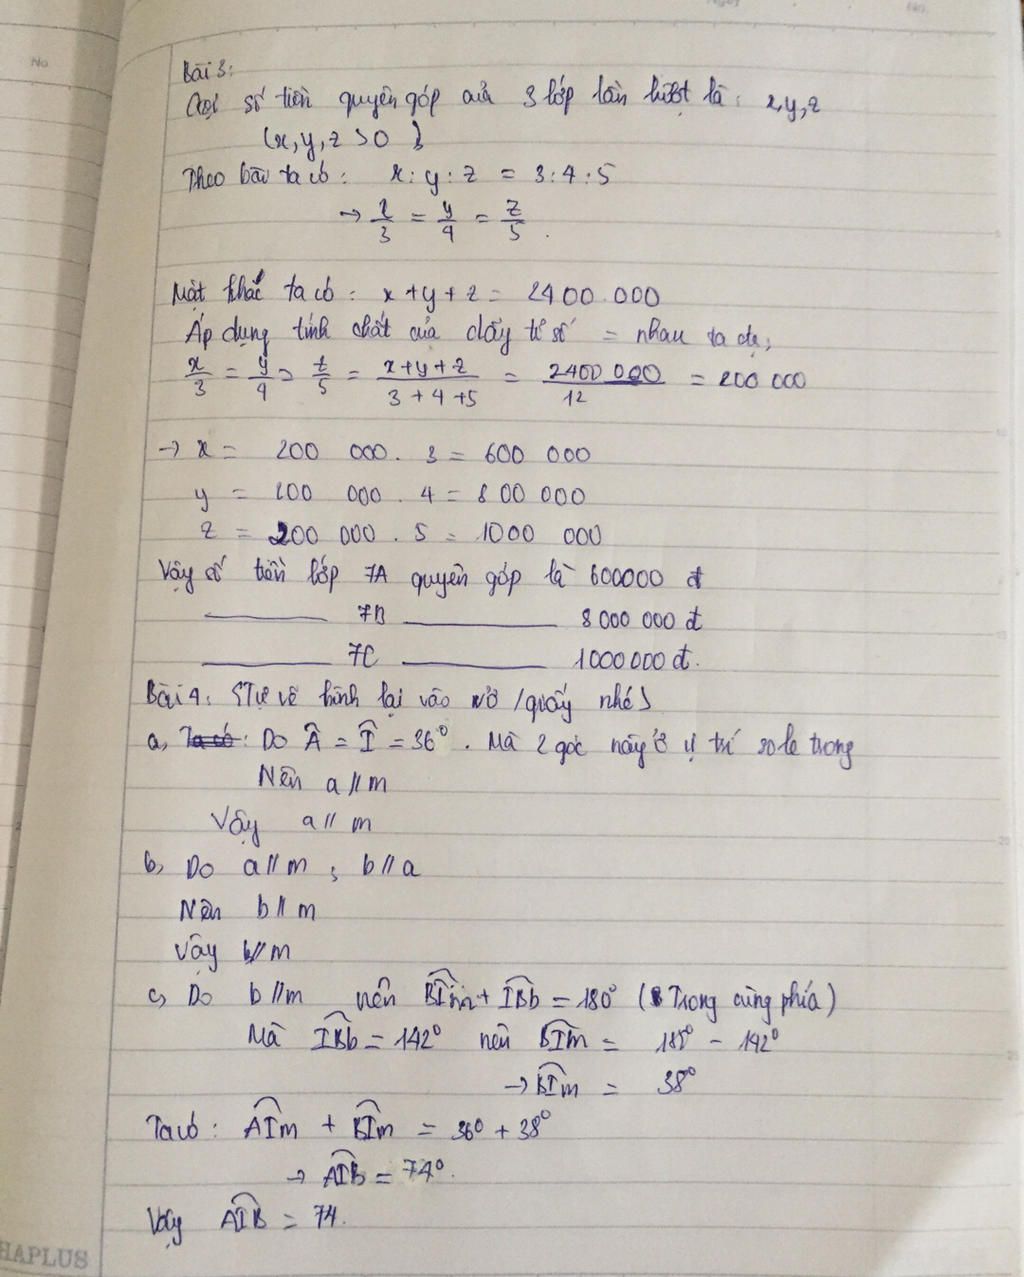 No
No.
Bài 3:
Gọi số tiền quyên góp của 3 lớp lần lượt là: x,y,z
(x,y,z >0 )
Theo bài ta có: x:y:z = 3:4:5
→ x/3 = y/4 = z/5.
Mặt khác ta có: x+y+z = 2400.000
Áp dụng tính chất của dãy tỉ số = nhau ta đc;
x/3 = y/4 = z/5 = x+y+z/3+4+5 = 2400 000/12 = 200 000
→ x = 200 000. 3 = 600 000
y = 200 000 . 4 = 800 000
z = 200 000 . 5 = 1000 000
Vậy số tiền lớp 7A quyên góp là 600000 đ
——— 7B ——— 8 000 000 đ
——— 7C ——— 1000000 đ.
Bài 4: (Tự vẽ hình lại vào vở /giấy nhé)
a, Ta có: Do Â = Î = 36°. Mà 2 góc này ở vị trí so le trong
Nên a // m
Vậy a // m
b, Do a // m ; b // a
Nên b // m
Vậy b // m
c, Do b // m nên BIm + IBb = 180° (Trong cùng phía)
Mà IBb = 142° nên BIm = 180° - 142°
→ BIm = 38°
Ta có: AIm + BIm = 36° + 38°
→ AIB = 74°.
Vậy AIB = 74.
HAPLUS